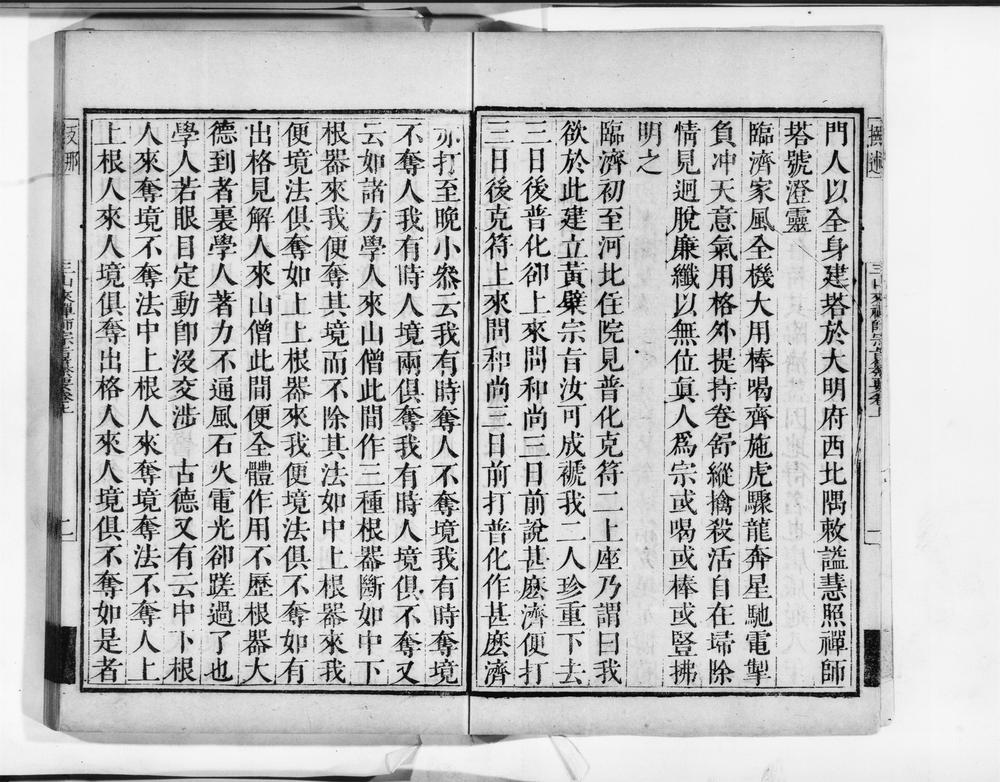 門人以全身建塔於大明府西北隅敕謚慧照禪師
塔號澄靈
臨濟家風全機大用棒喝齊施虎驟龍奔星馳電掣
負冲天意氣用格外提持卷舒縱擒殺活自在埽除
情見迥脫廉纖以無位眞人爲宗或喝或棒或豎拂
明之
臨濟初至河北住院見普化克符二上座乃謂曰我
欲於此建立黃檗宗旨汝可成褫我二人珍重下去
三日後普化卻上來問和尚三日前說甚麽濟便打
三日後克符上來問和尚三日前打普化作甚麽濟
亦打至晚小叅云我有時奪人不奪境我有時奪境
不奪人我有時人境兩俱奪我有時人境俱不奪又
云如諸方學人來山僧此間作三種根器斷如中下
根器來我便奪其境而不除其法如中上根器來我
便境法俱奪如上上根器來我便境法俱不奪如有
出格見解人來山僧此間便全體作用不歷根器大
德到者裏學人著力不通風石火電光卻蹉過了也
學人若眼目定動卽沒交涉 古德又有云中下根
人來奪境不奪法中上根人來奪境奪法不奪人上
上根人來人境俱奪出格人來人境俱不奪如是者
三山來禪師宗旨纂要卷上
二